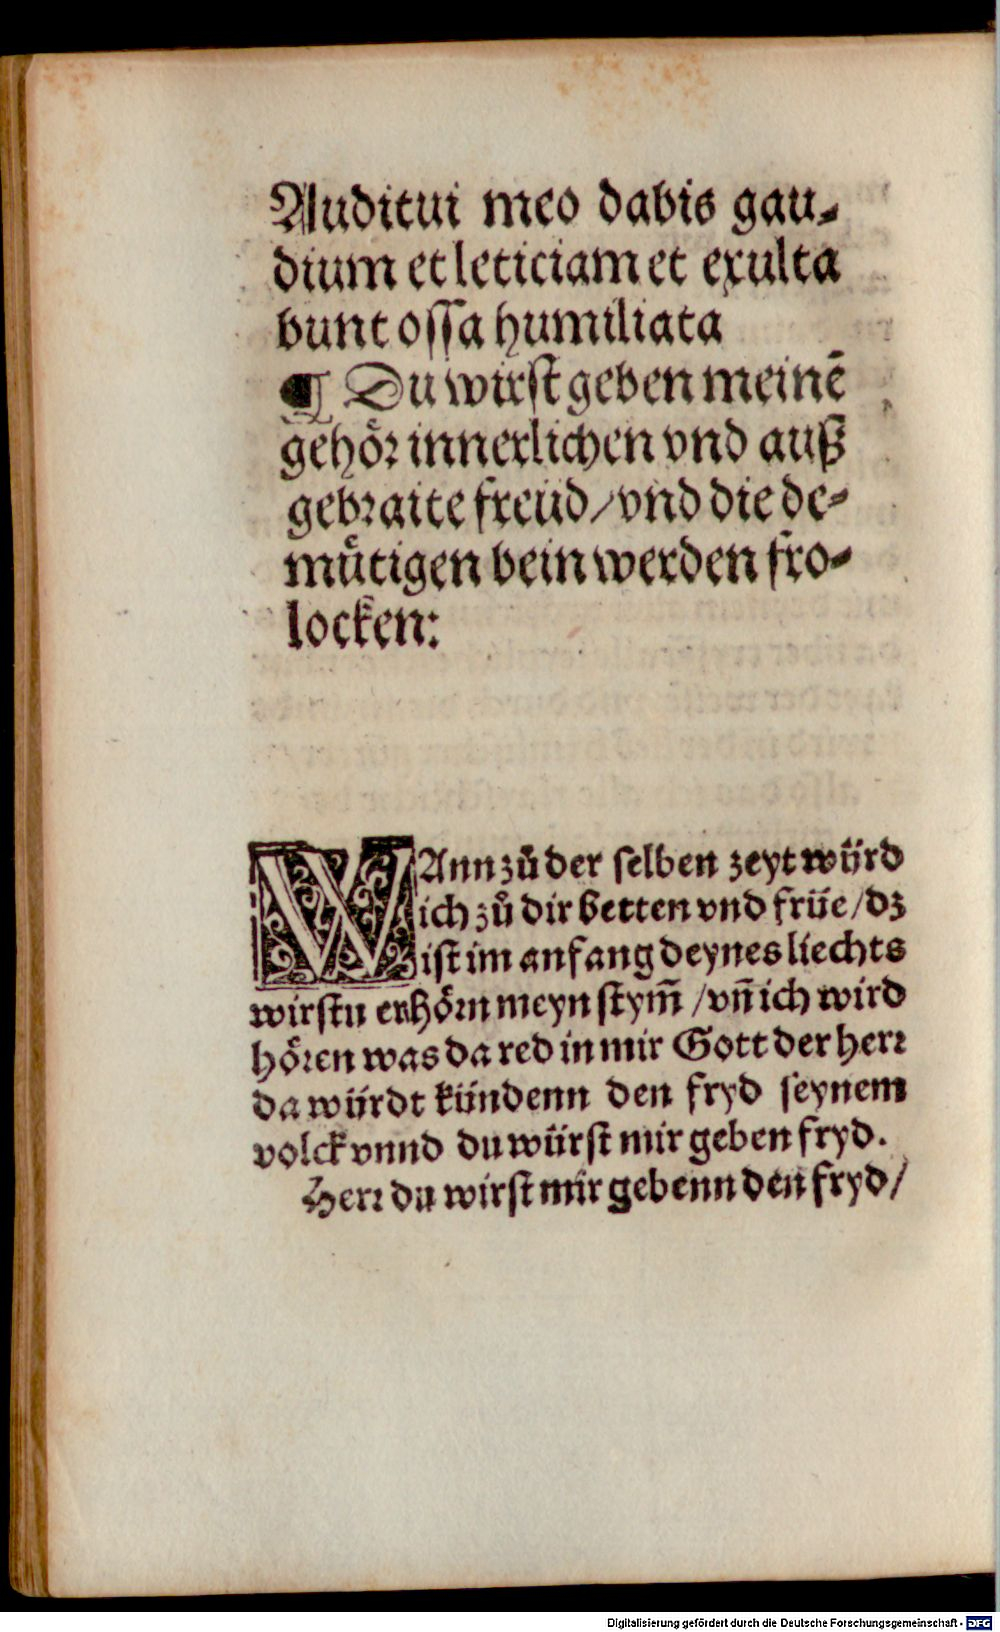 Auditui meo dabis gau⸗
dium et leticiam et exulta
bunt ossa humiliata
¶ Du wirst geben meinē
gehör innerlichen vnd auß
gebraite freüd/vnd die de⸗
mütigen bein werden fro⸗
locken:
WAnn zů der selben zeyt würd
ich zů dir betten vnd früe/dz
ist im anfang deynes liechts
wirstu erhörn meyn stym̄/vn̄ ich wird
hören was da red in mir Gott der herr
da würdt kündenn den fryd seynem
volck vnnd du würst mir geben fryd.
Herr du wirst mir gebenn den fryd/
Digitalisierung gefördert durch die Deutsche Forschungsgemeinschaft - DFG